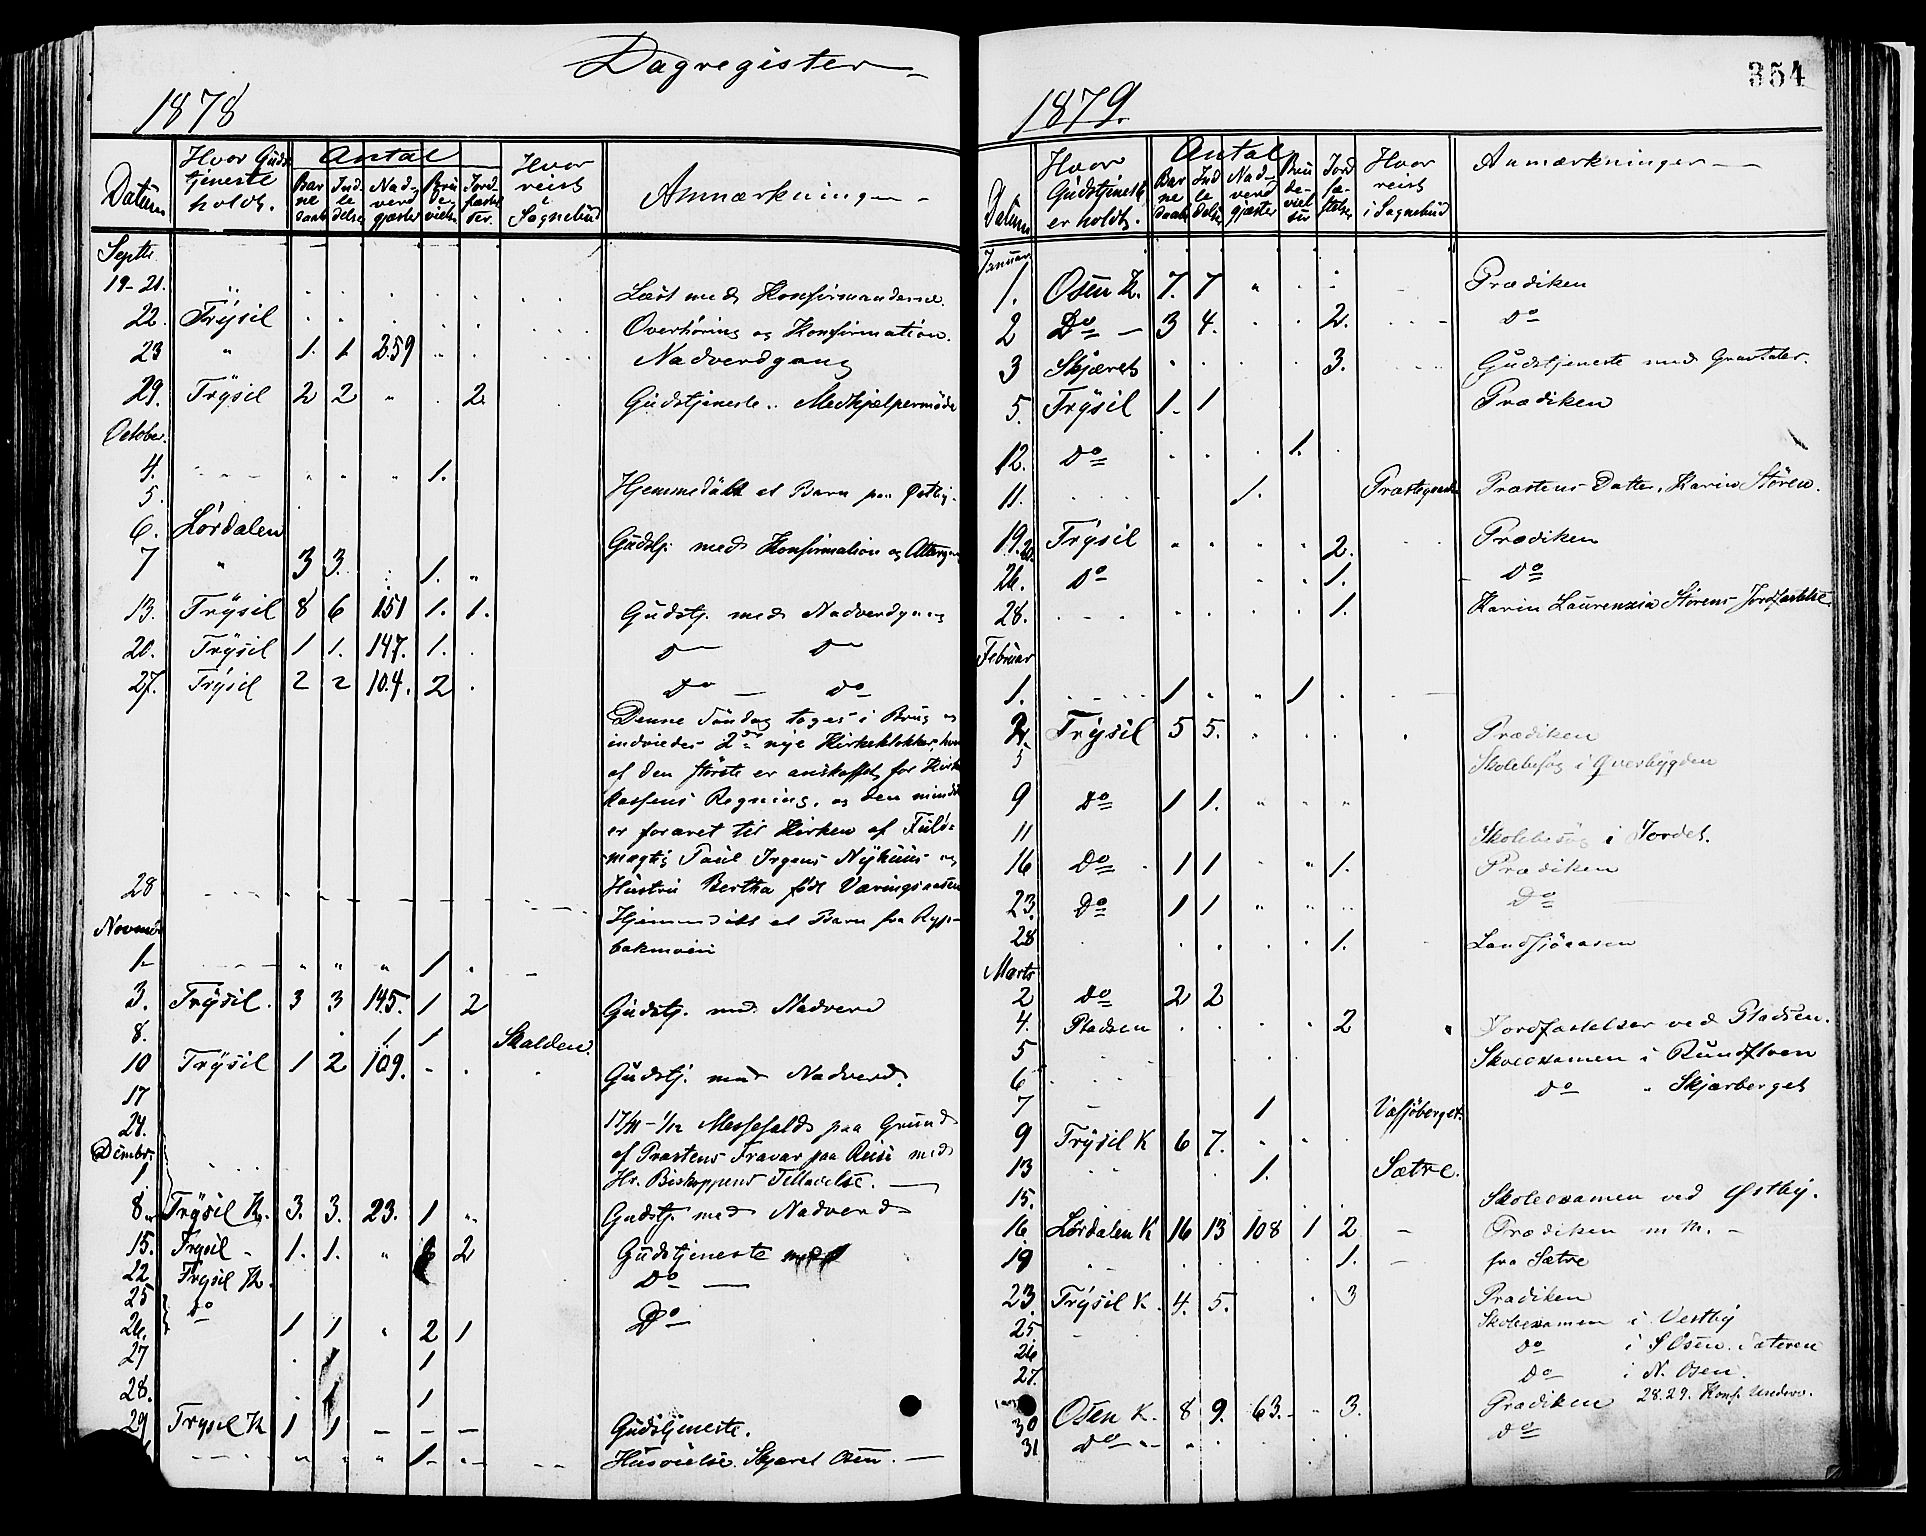 Dagregister
1878
Datum Hvor Guds tjeneste holdt. Antal Hvor reist i Sognebud Anmærkninger
Bar ne daab Ind le delse Nad verd gjæster Bru de vielse Jord fæstel ser.
Septbr.
19-21. Læst med Konfirmanderne.
22. Trysil Overhøring og Konfirmation.
23 " 1. 1 259 Nadverdgang
29. Trysil 2 2 " . 2. Gudstjeneste. Medhjælpermøde
October.
4. 1.
5. Hjemmedøbt et Barn paa Østby.
6. Lørdalen Gudstj. med Konfirmation og
7 " 3 3. 1.
13. Trysil 8 6 151 1. 1. Gudstj. med Nadverdgang
20. Trysil 1 1. 147. 1. Do Do
27. Trysil 2 2 104. 2 Do Do
Denne Søndag toges i Brug og
indviedes 2de nye Kirkeklokker, hvor
af den største er anskaffet for Kirke
kassens Regning, og den mindste
er foræret til Kirken af Fuld-
mægtig Paul Irgens Nyhuus og
Hustru Bertha født Væringsaasen
28 Hjemmedøbt et Barn fra Ryp-
Novembr bakmoen
1. 1
3. Trysil. 3 3 145. 1 2 Gudstj. med Nadverd
8. 1 1 Skalden.
10 Trysil 1 2 109. Gudstj. med Nadverd.
17
24. 17/11 - 1/12 Messefald paa Grund
Dcembr. af Præstens Fravær paa Reise med
1 Hr. Biskoppens Tilladelse.
8. Trysil K. 3. 3. 23. 1 Gudstj. med Nadverd
15. Trysil 1. 1. " 2 Gudstjeneste
22 Trysil K. Do
25 Do Do
26. 1 1 2 1
27 1
28. 1
29 Trysil K 1 1 Gudstjeneste.
1 Husvielse. Skjæret Osen.
354
1879.
Datum Hvor Gudstjeneste er holdt. Antal Hvor reist i Sognebud Anmærkninger
Bar ne daab Ind le delse Nad- verd gjæster Bru de- viel ser Jord fæ- stelser
Januar
1. Osen K. 7. 7 Prædiken
2 Do 3 4. 2. Do
3 Skjæret 3. Gudstjeneste med Gravtaler.
5. Trysil 1. 1 Prædiken
12. Do 1.
11. 1. Præstegaarden Præstens Datter, Karin Støren.
19. Trysil 2. Prædiken
26. Do 1. Do
28. 1. Karin Laurenzia Størens Jordfæstelse
Februar
1. 1 1
2. Trysil 5 5. Prædiken
5 Skolebesøg i Qverbygden
9 Do 1 1.
11 Skolebesøg i Jordet.
16 Do 1 1 1. Prædiken
23. Do 1 1 Do
28 1. Landsjøaasen
Marts
2 Do 2 2
4. Pladsen 2 Jordfæstelser ved Pladsen.
5 Skoleexamen i Rundfloen
6 Do " Skjærberget
7 1 Vasjøberget.
9 Trysil K 6 7.
13 1. Sætre.
15. Skoleexamen ved Østby.
16. Lørdalen K 16 13 108 1 2 Prædiken m. M.
19 1. fra Sætre
23. Trysil K. 4. 5. 3 Prædiken
25. Skoleexamen i Vestby
26 Do i S. Osen. Sæteren
27. Do i N. Osen.
30 Osen K. 8 9. 63. 3. Prædiken 28. 29. Konf. Underv.
31 Do Do